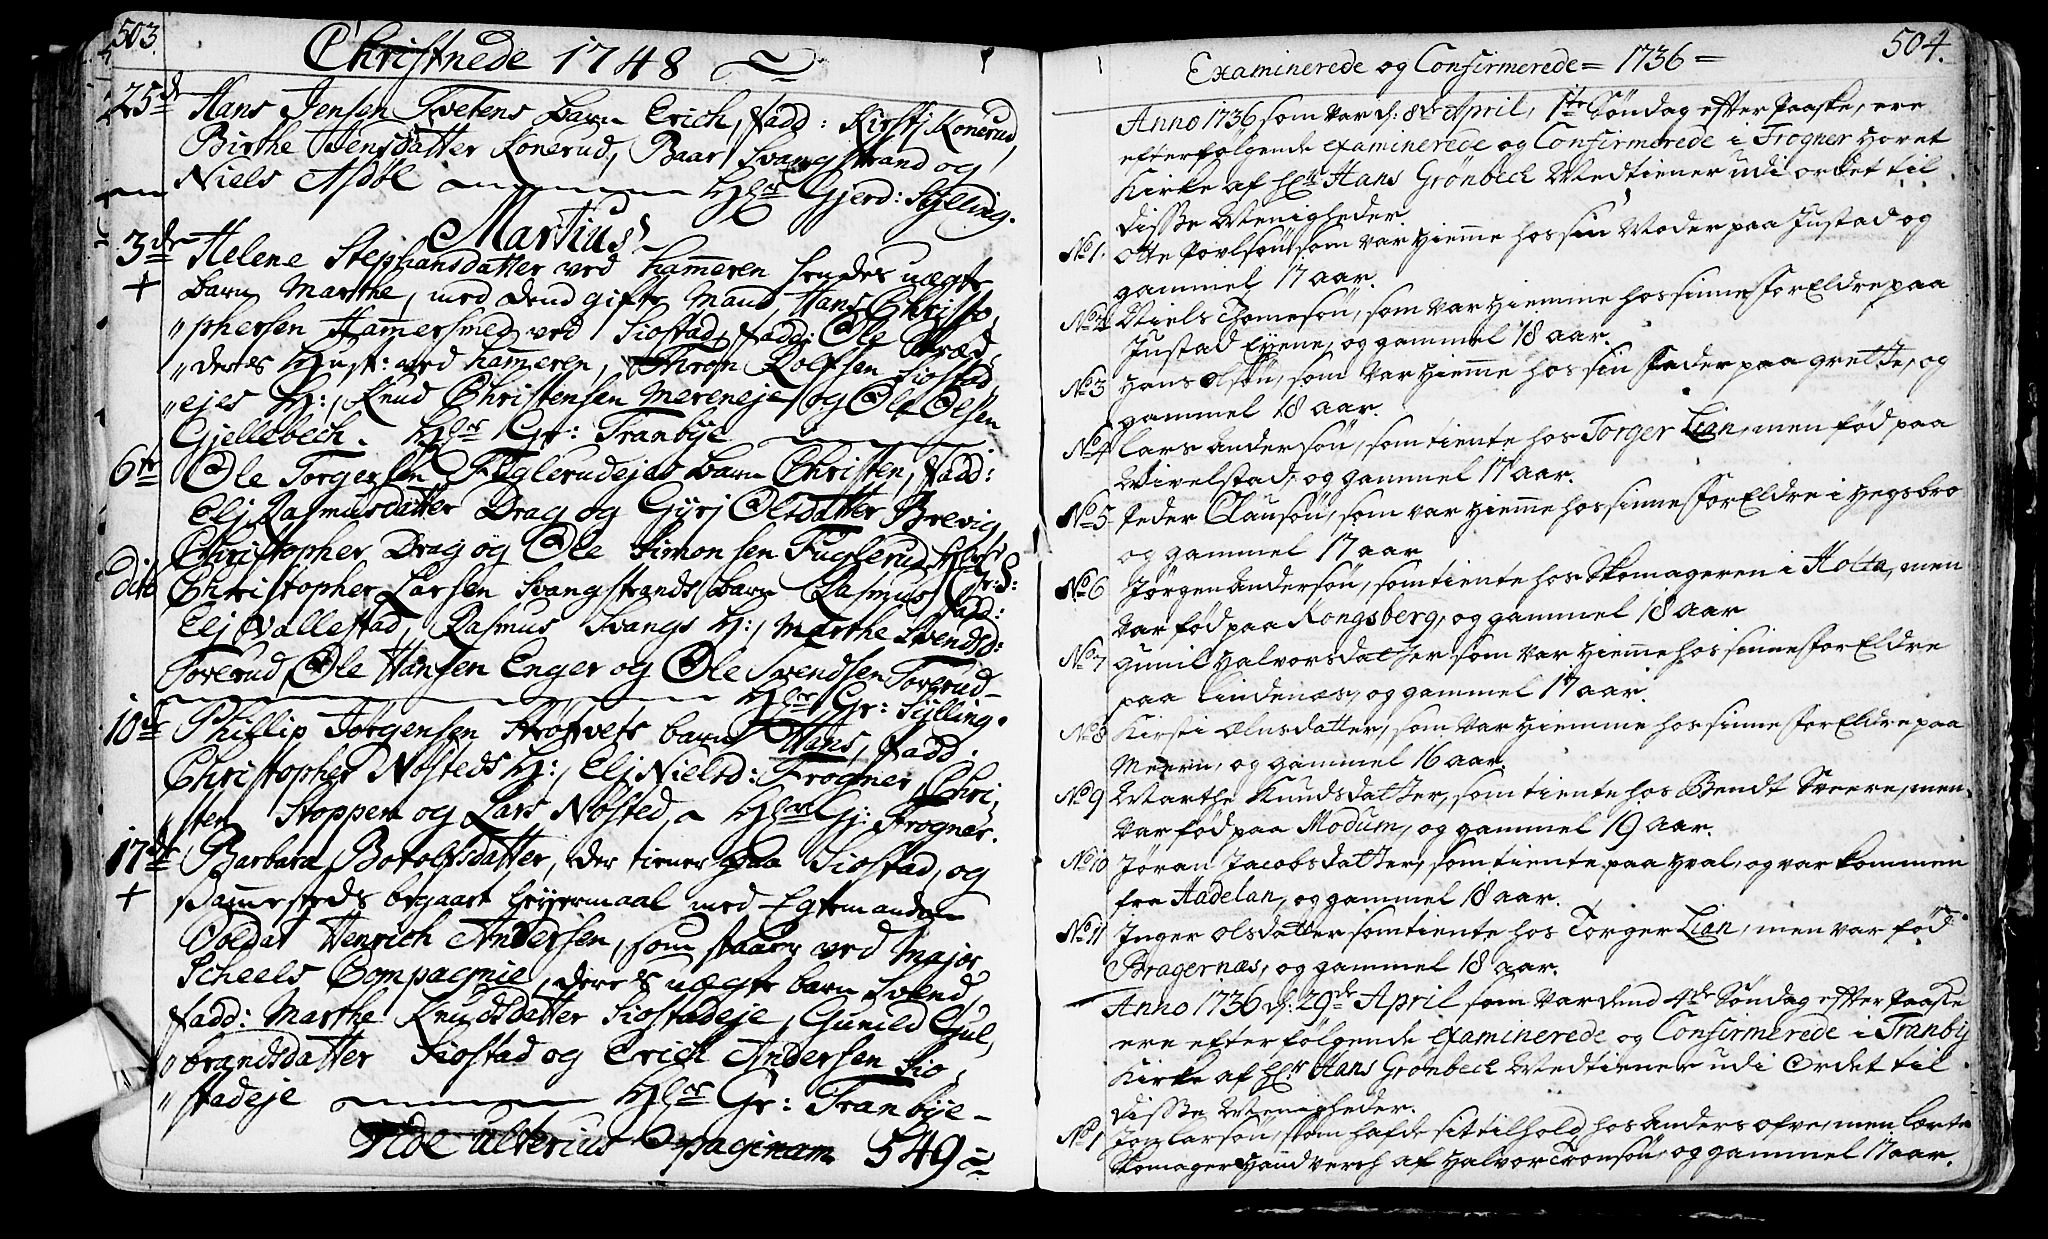 503.
Christnede 1748
25de Hans Jensen Tvetens barn Erich, fadd: Kirstj Konerud,
Birthe Jensdatter Konerud, Baar Svangstrand og
Niels Asdøl Hlor Gjerd: Sylling.
Martius
3de Helene Stephansdatter ved Hameren hendes uægte
+ barn Marthe, med dend gifte Mand Hans Christo,
"phersen Hamersmed ved Siostad, fadd: Ole
"deres Hust: ved Hameren, Thron Rolfsen Siostad,
"ejes H:, Knud Christensen Mereneje og Ole Olsen
Gjellebech. Hlor Gr: Tranbye
6te Ole Torgersen Fuglerudejes barn Christen, fadd:
Elj Rasmusdatter Drag og Gyrj Olsdatter Brevig,
Christopher Drag og Ole Simonsen Fuglerud
dito Christopher Larsen Svangstrands barn Rasmus fadd:
Elj Vallestad, Rasmus Svangs H:, Marthe Svendsd:
Toverud, Ole Hansen Enger og Ole Svendsen Toverud
Hlor Gr: Sylling.
10de Phillip Jørgensen barn Hans, fadd:
Christopher Nøsteds H:, Elj Nielsd: Frogner, Chri,
"sten Stoppen og Lars Nøsted, Hlor Gj: Frogner.
17de Barbara Botolfsdatter, der tiener paa Siostad, og
+ samesteds begaaet Leyermaal med Egtemanden
Soldat Henrich Andersen, som staaer ved Major
Scheels Compagnie, deres uægte barn Svend,
fadd: Marthe Knudsdatter Siostadeje, Gunild Gul,
"brandsdatter Siostad og Erich Andersen Sio,
"stadeje Hlor Gr: Tranbye
Vide ulterius paginam 549
504.
Examinerede og Confirmerede = 1736 =
Anno 1736 som var d: 8de April, 1te Søndag efter Paaske, ere
efterfølgende examinerede og Confirmerede i Frogner
Kirke af Hr: Hans Grönbech Medtiener udi ordet til
disse Menigheder
No 1. Otte Povlsön som var hiemme hos sin Moder paa Justad og
gammel 17 aar.
No 2 Niels Thomesön, som var hiemme hos sinne forEldre paa
Justad Eyene, og gammel 18 aar.
No 3 Hans Olsön, som var hiemme hos sin fader paa Grette, og
gammel 18 aar.
No 4 Lars Andersön, som tiente hos Torger Lian, men fød paa
Vivelstad, og gammel 17 aar.
No 5 Peder Clausön, som var hiemme hos sinne forEldre i Hegsbro
og gammel 17 aar
No 6 Jörgen Andersön, som tiente hos Skomageren i Holta, men
var fød paa Kongsberg, og gammel 18 aar
No 7 Gunil Halvorsdatter som var hiemme hos sinne forEldre
paa Lindenæs, og gammel 17 aar.
No 8 Kirsti Olusdatter, som var hiemme hos sinne forEldre paa
Meern, og gammel 16 aar.
No 9 Marthe Knudsdatter, som tiente hos Bendt Sveere, men
var fød paa Modum, og gammel 19 aar.
No 10 Jøran Jacobsdatter, som tiente paa Hval, og var kommen
fra Hadelan, og gammel 18 aar.
No 11 Inger Olsdatter som tiente hos Torger Lian, men var fød
Bragernæs, og gammel 18 aar.
Anno 1736 d: 29de April som var dend 4de Søndag efter Paaske
ere efterfölgende examinerede og Confirmerede i Tranby
Kirke af Hr Hans Grönbech Medtiener udi Ordet til
disse Menigheder.
No 1 Jon Larsön, som hafde sit tilhold hos Anders ofve, men lærte
Skomager Handverch af Halvor Tronsön, og gammel 17 aar.